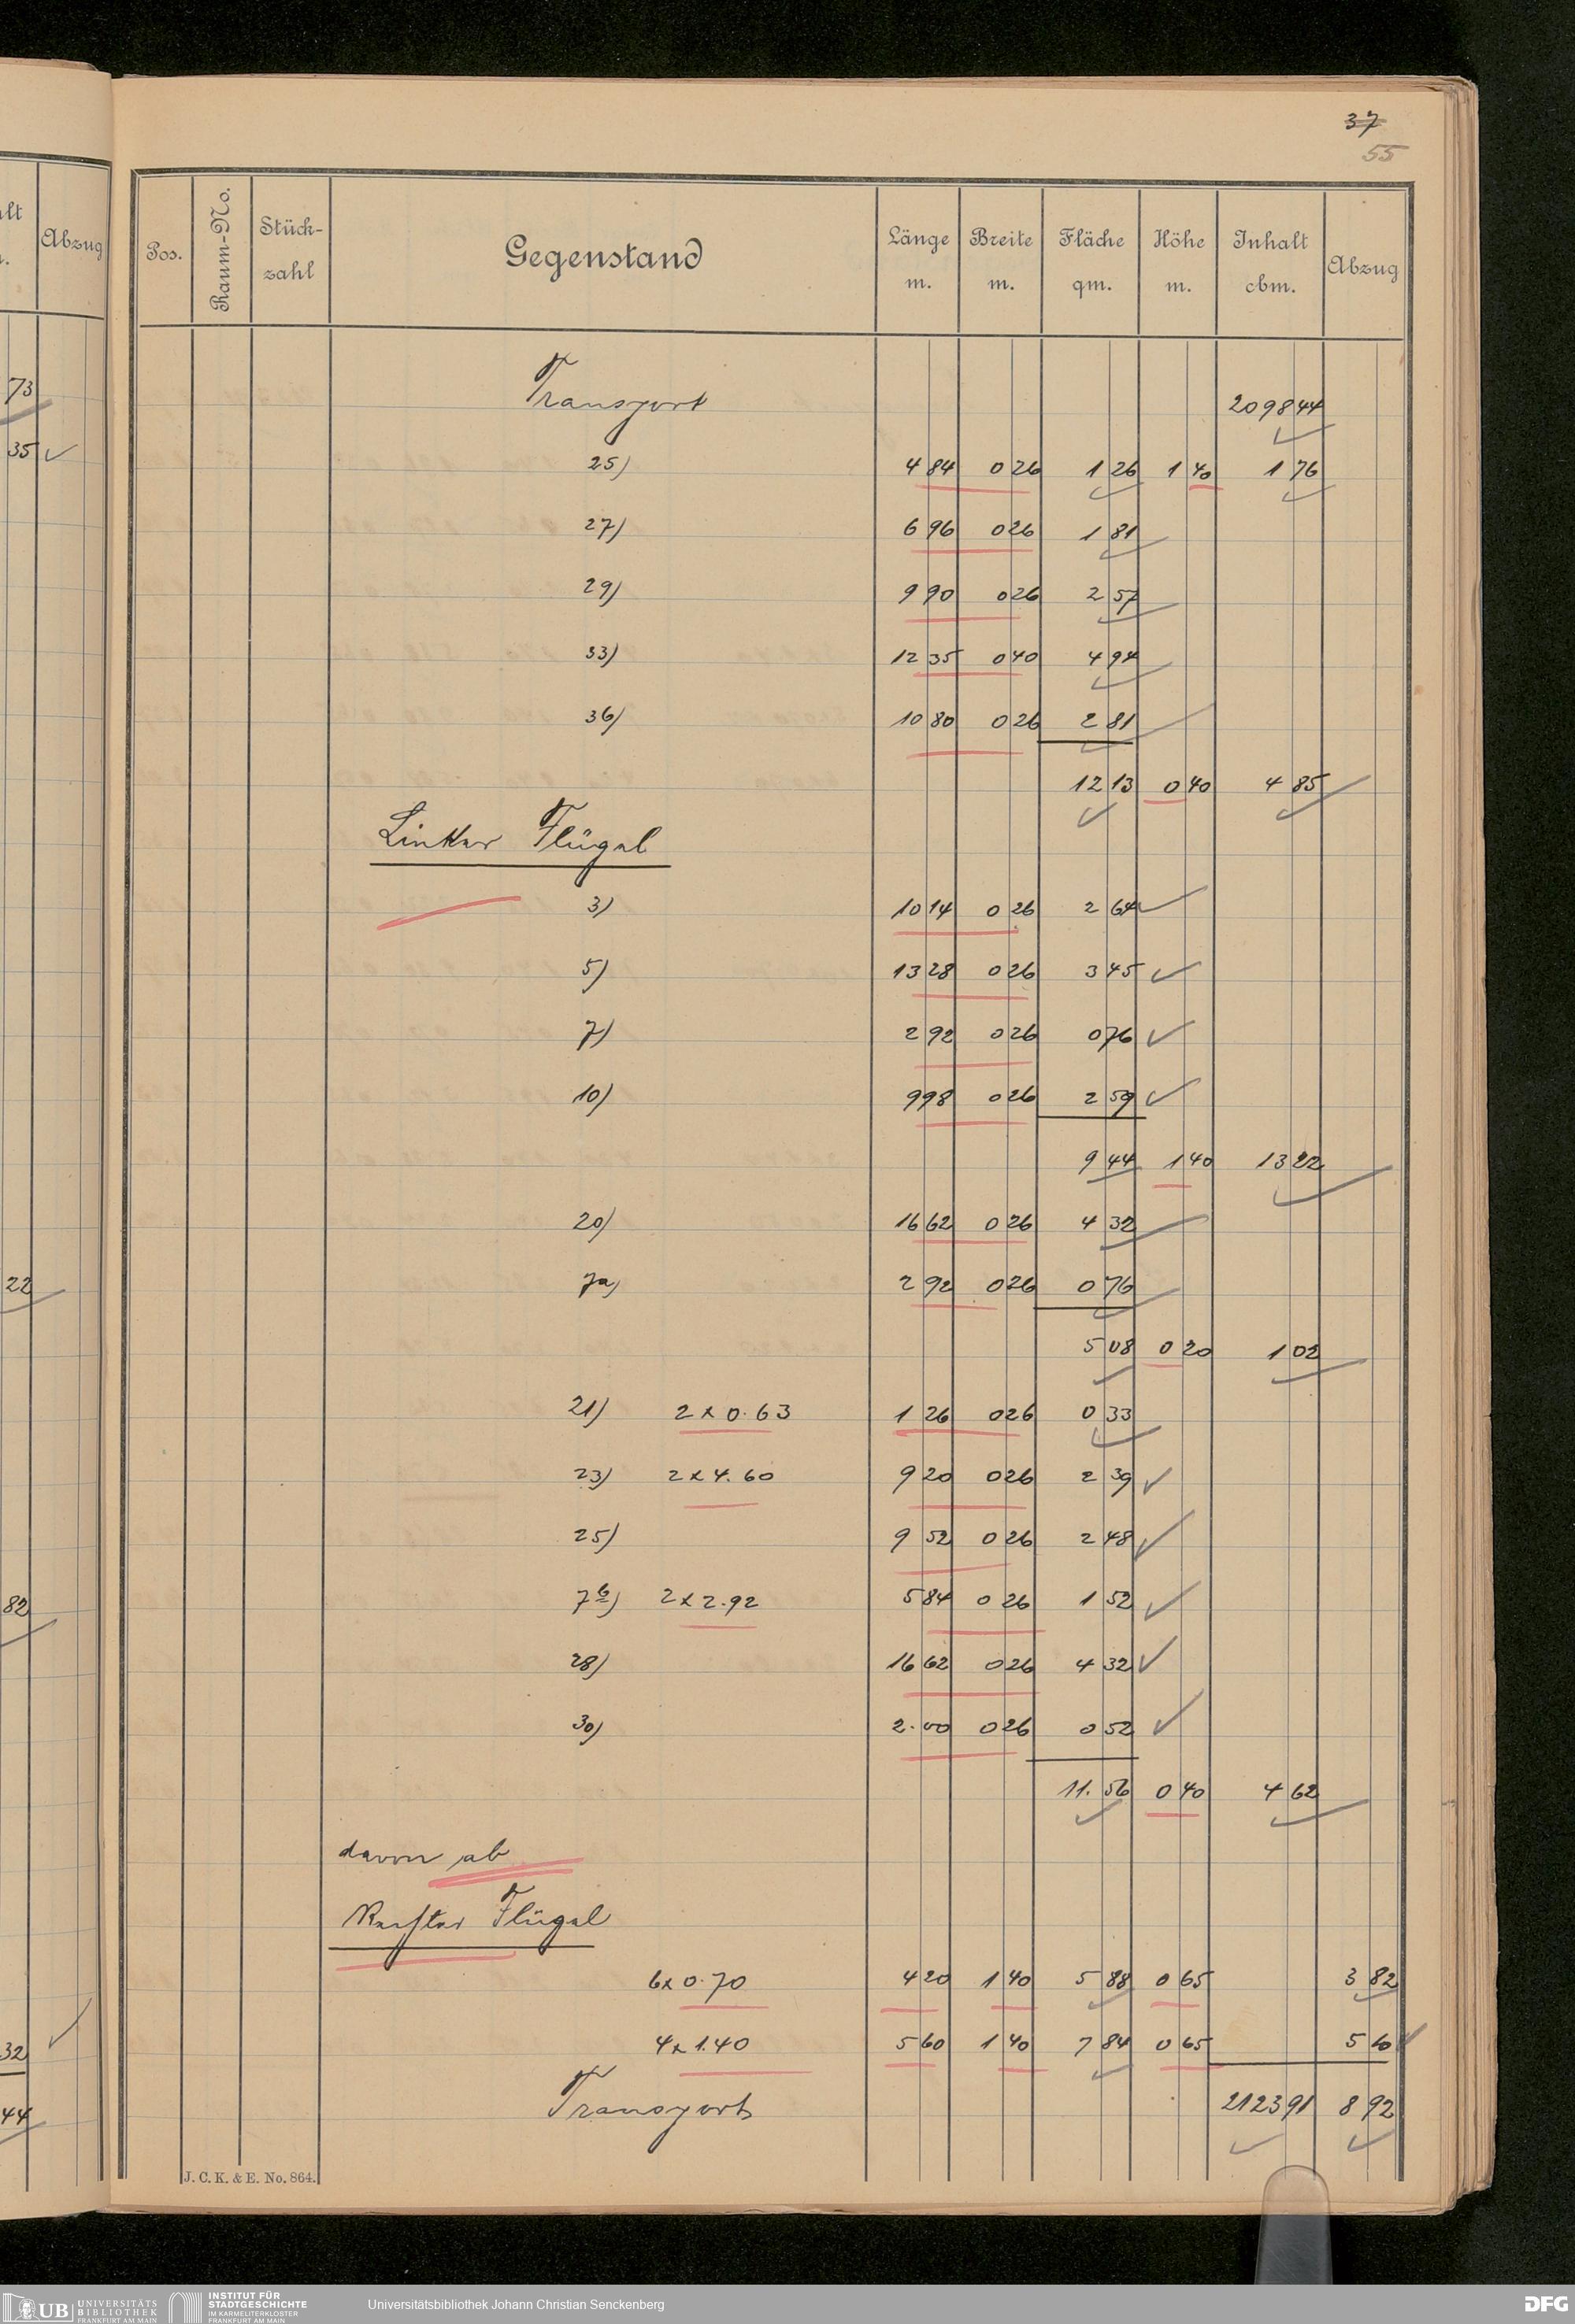 37
55
Pos. Raum-No. Stück-zahl Gegenstand Länge m. Breite m. Fläche qm. Höhe m. Inhalt cbm. Abzug
Transport 2098 44
25) 4 84 0 26 1 26 1 40 1 76
27) 6 96 0 26 1 81
29) 9 90 0 26 2 57
33) 12 35 0 40 4 94
36) 10 80 0 26 2 81
12 13 0 40 4 85
Linker Flügel
3) 10 14 0 26 2 64
5) 13 28 0 26 3 45
7) 2 92 0 26 0 76
10) 9 98 0 26 2 59
9 44 1 40 13 22
20) 16 62 0 26 4 32
7a) 2 92 0 26 0 76
5 08 0 20 1 02
21) 2 x 0.63 1 26 0 26 0 33
23) 2 x 4.60 9 20 0 26 2 39
25) 9 52 0 26 2 48
7b) 2 x 2.92 5 84 0 26 1 52
28) 16 62 0 26 4 32
30) 2.00 0 26 0 52
11.56 0 40 4 62
davon ab
Rechter Flügel
6 x 0.70 4 20 1 40 5 88 0 65 3 82
4 x 1.40 5 60 1 40 7 84 0 65 5 10
Transport 2123 91 8 92
J. C. K. & E. No. 864.
alt
Abzug
73
35
22
82
32
44
UB UNIVERSITÄTS BIBLIOTHEK FRANKFURT AM MAIN
INSTITUT FÜR STADTGESCHICHTE IM KARMELITERKLOSTER FRANKFURT AM MAIN
Universitätsbibliothek Johann Christian Senckenberg
DFG